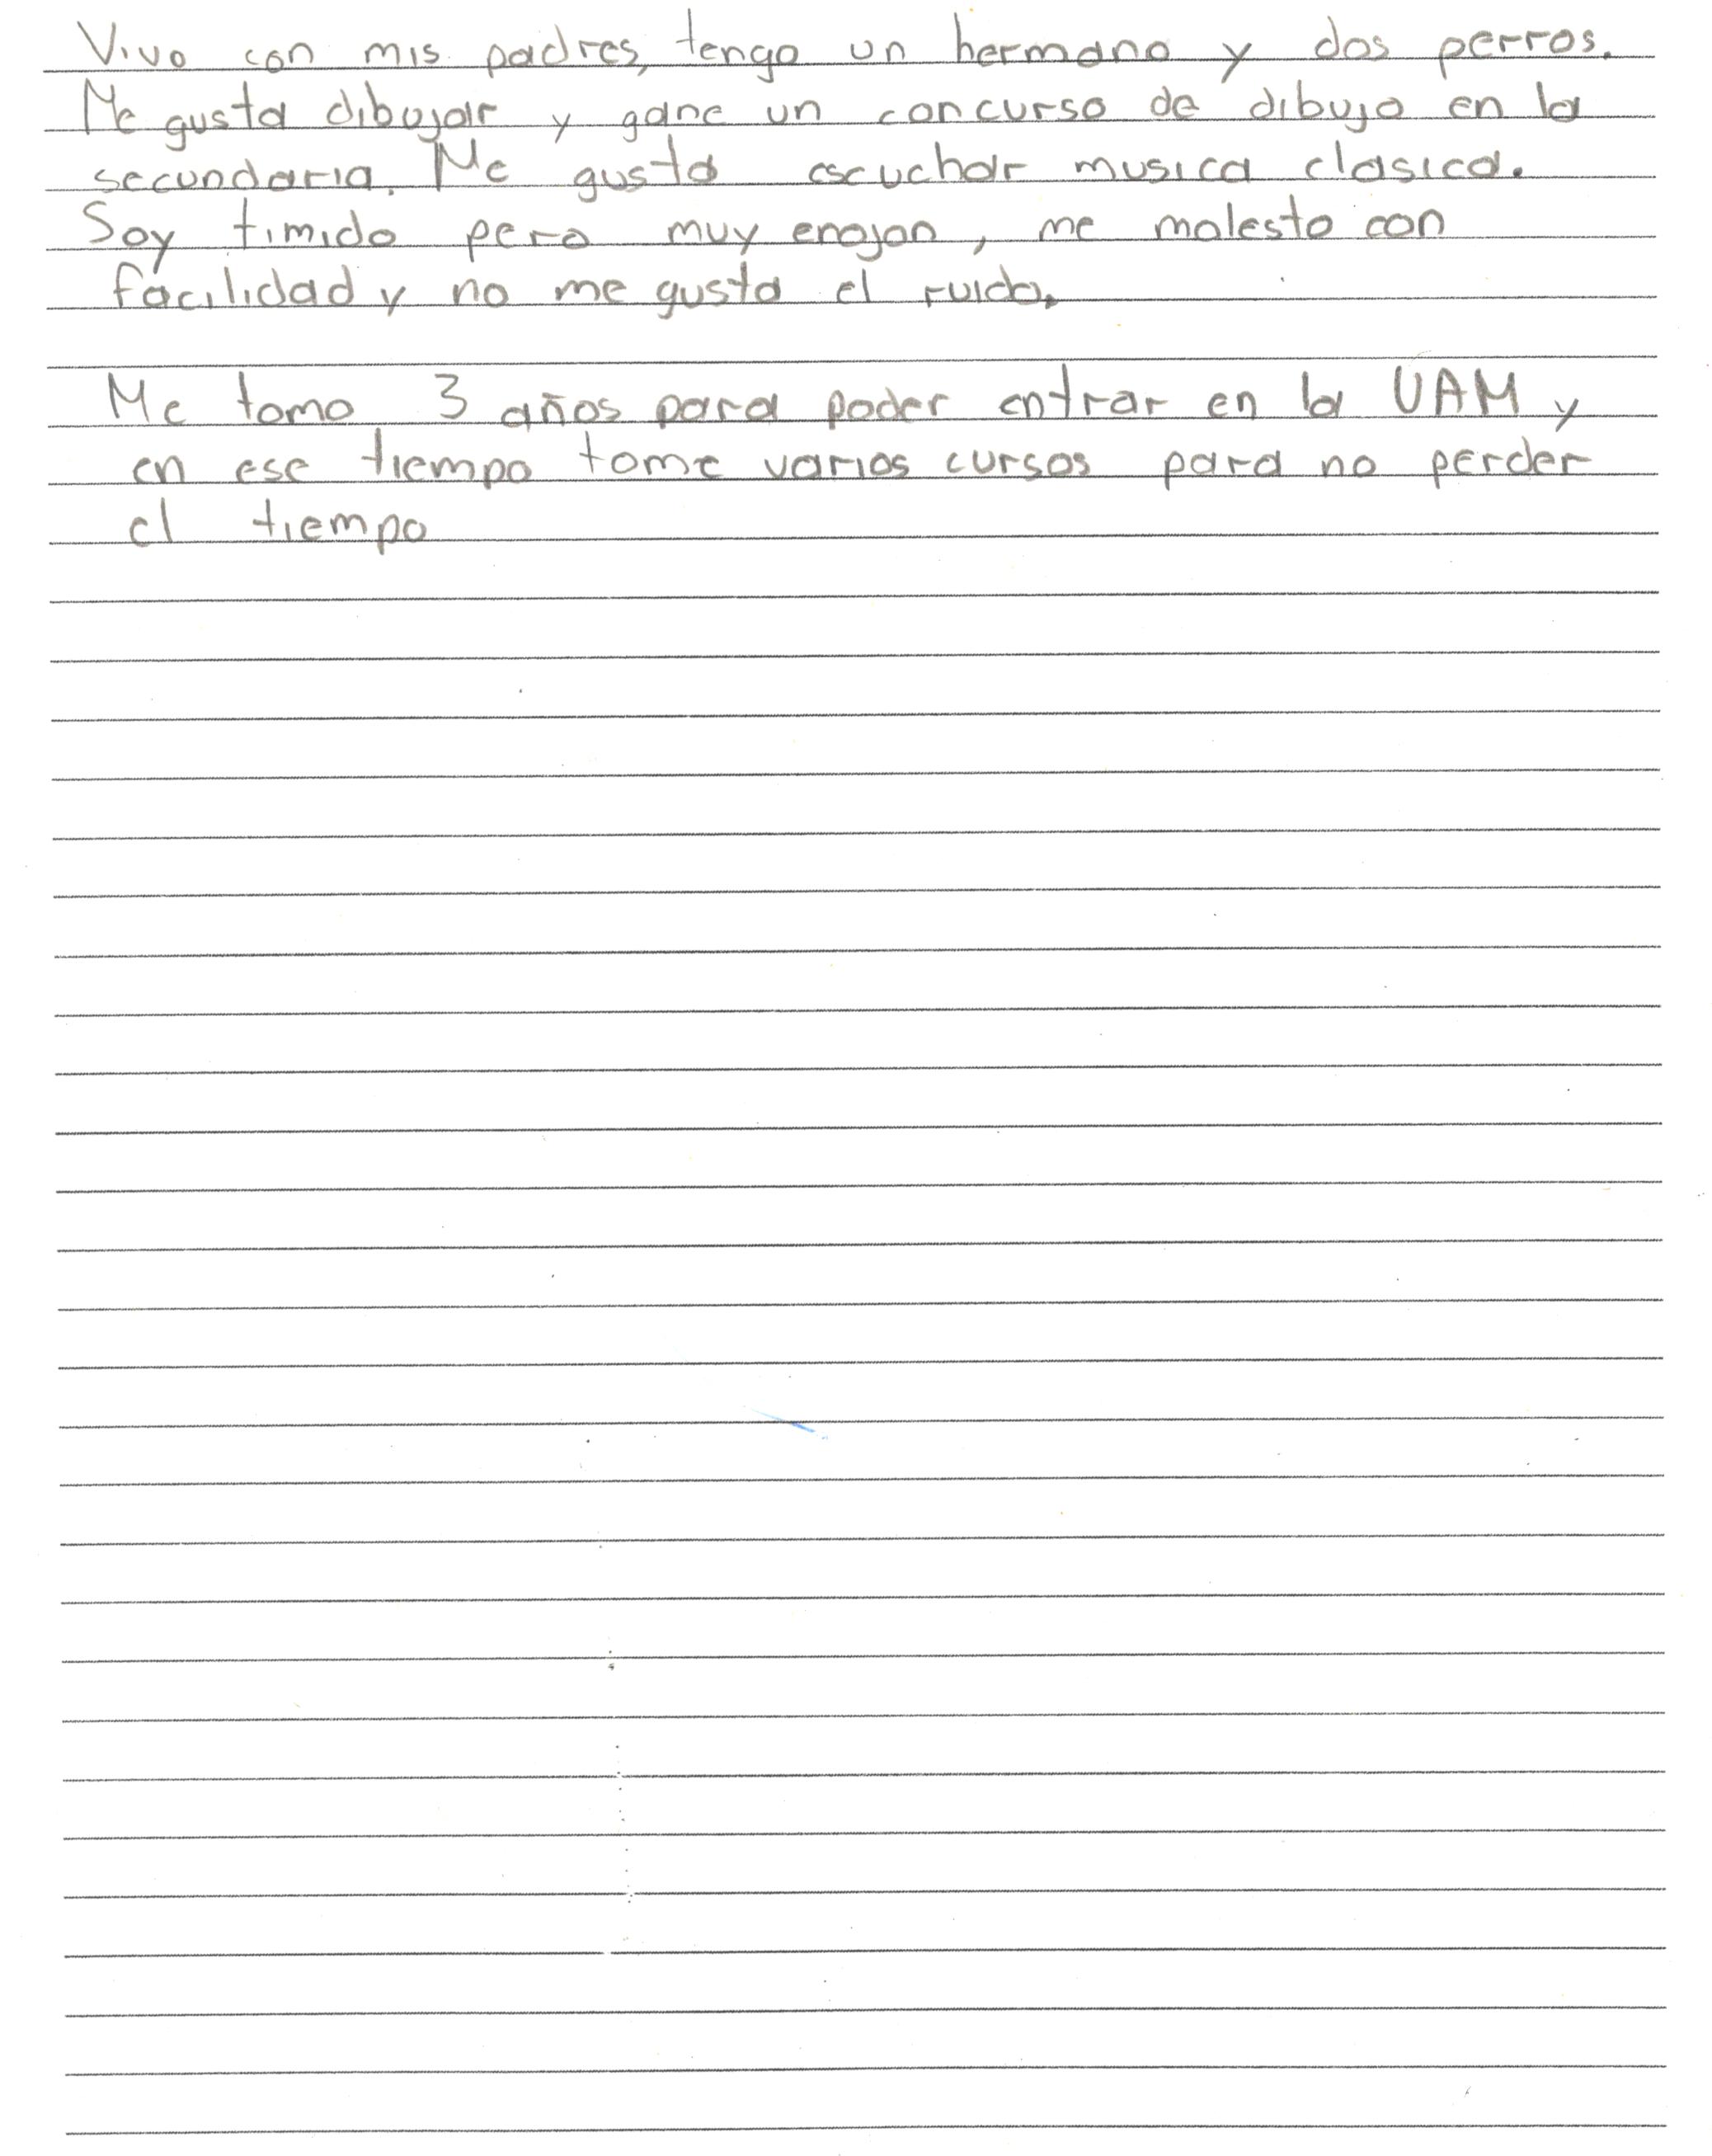 Vivo con mis padres, tengo un hermano y dos perros.
Me gusta dibujar y gane un concurso de dibujo en la
secundaria. Me gusta escuchar musica clasica.
Soy timido pero muy enojon, me molesto con
facilidad y no me gusta el ruido.
Me tomo 3 años para poder entrar en la UAM y
en ese tiempo tome varios cursos para no perder
el tiempo